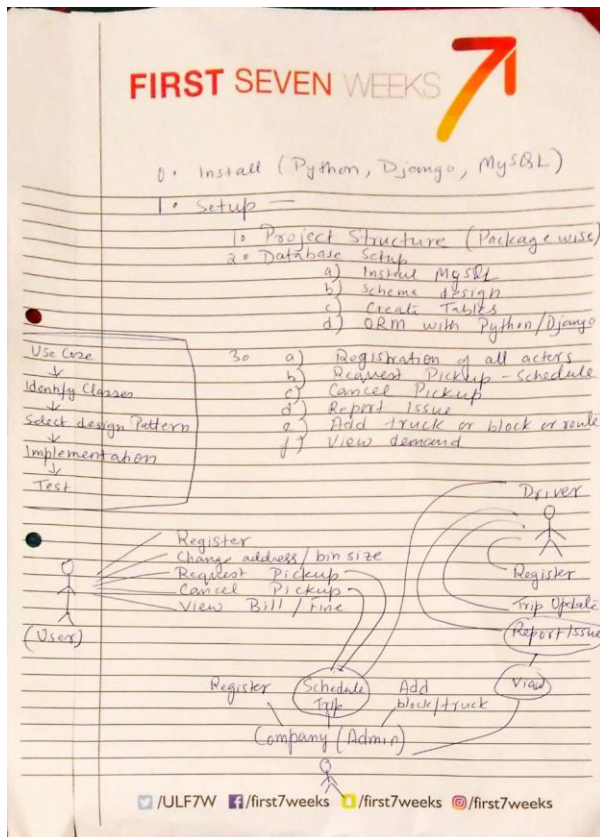 FIRST SEVEN WEEKS 7
0. Install (Python, Django, MySQL)
1. Setup —
1. Project Structure (Package wise)
2. Database Setup
a) Install MySQL
b) Scheme design
c) Create Tables
d) ORM with Python/Django
3. a) Registration of all actors
b) Request Pickup - Schedule
c) Cancel Pickup
d) Report Issue
e) Add truck or block or route
f) View demand
Use Case
Identify Classes
Select design Pattern
Implementation
Test
Register
Change address / bin size
Request Pickup
Cancel Pickup
View Bill / Fine
(User)
Driver
Register
Trip Update
Report Issue
View
Register
Schedule Trip
Add block/truck
Company (Admin)
/ULF7W /first7weeks /first7weeks /first7weeks